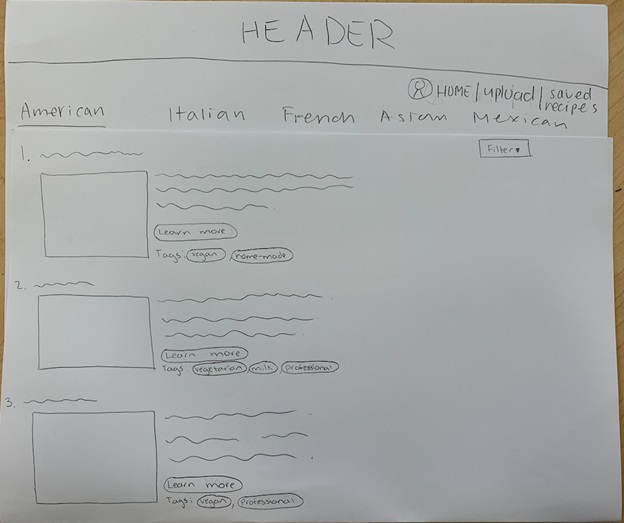 HEADER
HOME / upload / saved recipes
American Italian French Asian Mexican
Filter
1.
Learn more
Tags: vegan, home-made
2.
Learn more
Tags: vegetarian, milk, professional
3.
Learn more
Tags: vegan, professional